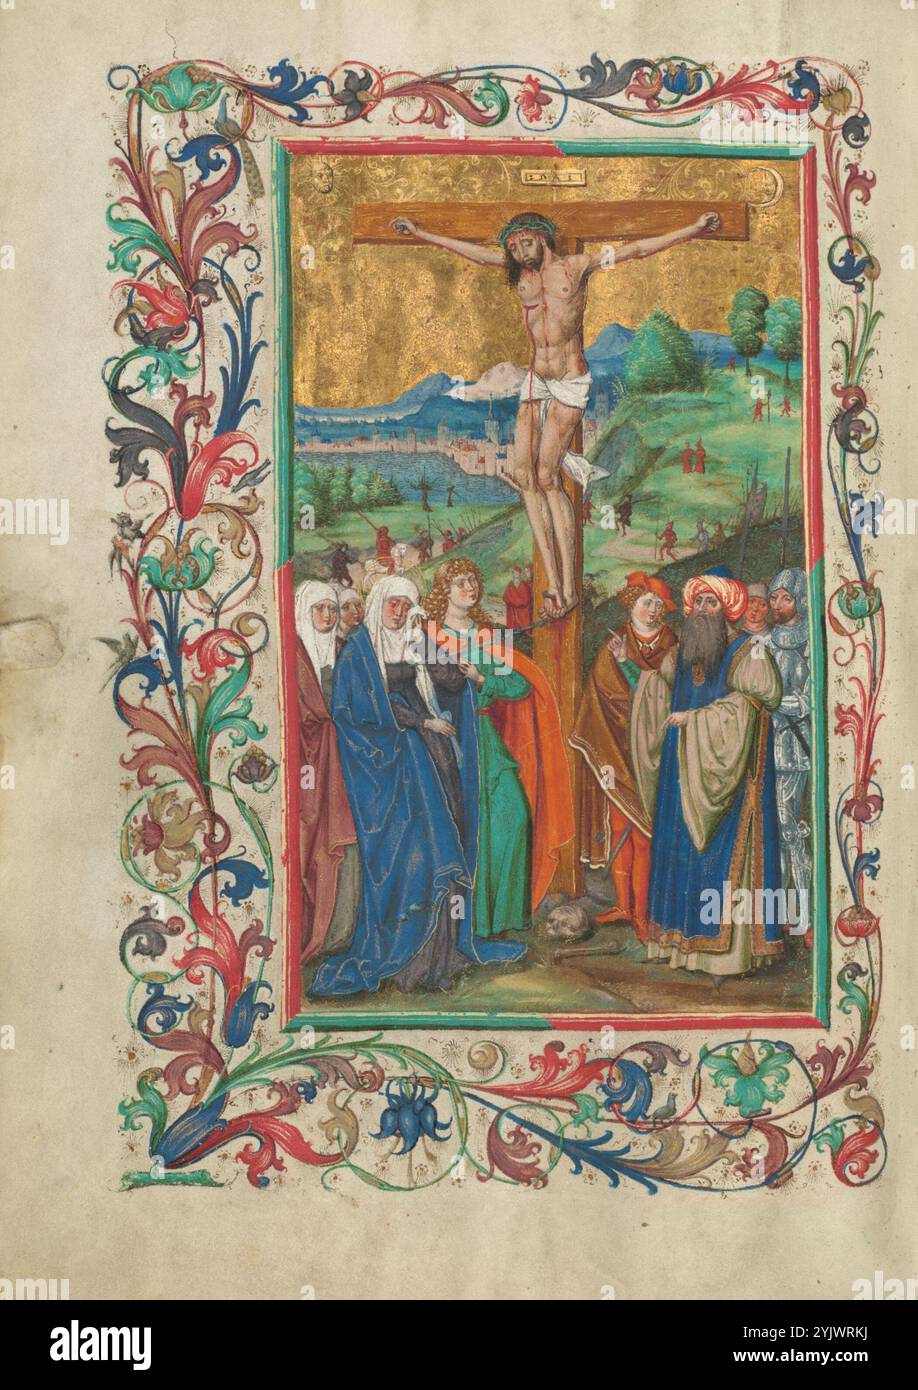 alamy
Image ID: 2YJWRKJ
www.alamy.com